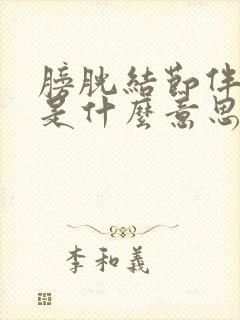 膀胱結節伴
是什麼意思
李和義